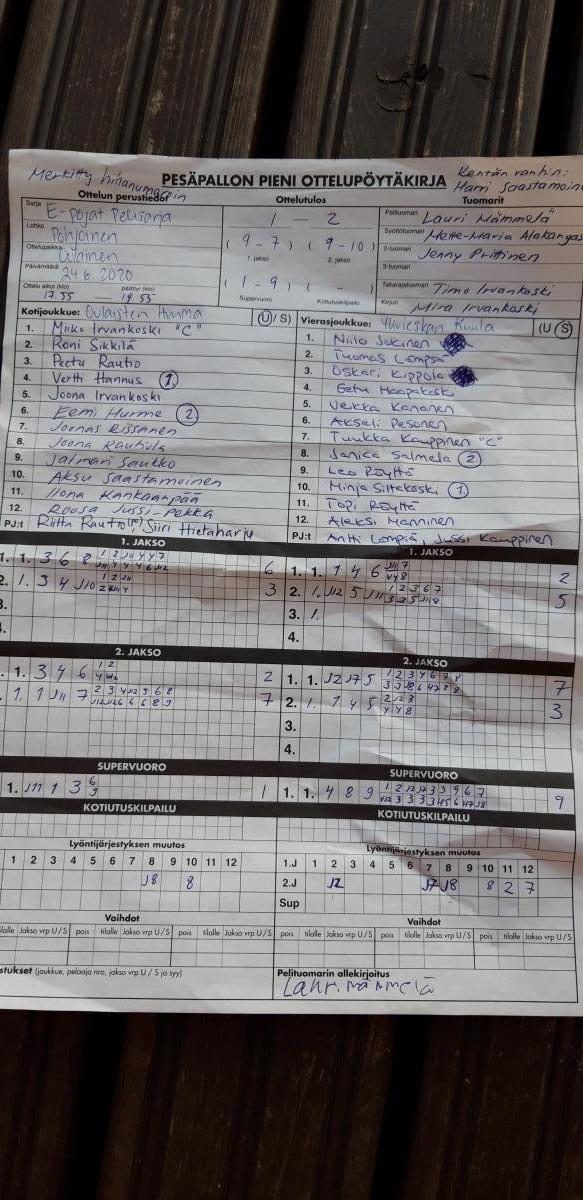 Merkitty hihanumeroin
PESÄPALLON PIENI OTTELUPÖYTÄKIRJA
Kentän vanhin:
Harri Saastamoine
Ottelun perustiedot
Ottelutulos
Tuomarit
Sarja E-pojat Pelisarja
1 - 2
Pelituomari Lauri Mämmelä
Lohko Pohjoinen
(9 - 7) (9 - 10)
1. jakso 2. jakso
Syöttötuomari Mette-Maria Alakangas
Ottelupaikka Oulainen
2-tuomari Jenny Prittinen
Päivämäärä 24.6.2020
(1 - 9) ( - )
3-tuomari
Ottelu alkoi (klo) päättyi (klo)
17.55 — 19.53
Supervuoro Kotiutuskilpailu
Takarajatuomari Timo Irvankoski
Kirjuri Mira Irvankoski
Kotijoukkue: Oulaisten Huima (U/S)
Vierasjoukkue: Ylivieskan Kuula (U/S)
1. Miiko Irvankoski "C"
1. Niilo Jokinen
2. Roni Sikkilä
2. Tuomas Lämpsä
3. Peetu Rautio
3. Oskari Kippola
4. Vertti Hannus 1.
4. Eetu Haapakoski
5. Joona Irvankoski
5. Veikka Kananen
6. Eemi Hurme 2
6. Akseli Pesonen
7. Joonas Rissanen
7. Tuukka Kauppinen "C"
8. Joona Rautiola
8. Janica Salmela 2
9. Jalmari Sautko
9. Leo Pöyttä
10. Aksu Saastamoinen
10. Minja Siltakoski 1
11. Ilona Kankaanpää
11. Topi Pöyttä
12. Roosa Jussi-Pekka
12. Aleksi Manninen
PJ:t Riitta Rautio(P), Siiri Hietaharju
PJ:t Antti Lämpsä, Jussi Kauppinen
1. JAKSO
1. JAKSO
1. 1. 3 6 8
6
1. 1. 1 4 6
2
2. 1. 3 4 J10
3
2. 1. J12 5 J11
5
3.
3. 1.
4.
4.
2. JAKSO
2. JAKSO
1. 3 4 6
2
1. 1. J2 J7 5
7
1. 1 J11 7
7
2. 1. 1 4 5
3
3.
4.
SUPERVUORO
SUPERVUORO
1. J11 1 3
1
1. 1. 4 8 9
9
KOTIUTUSKILPAILU
KOTIUTUSKILPAILU
Lyöntijärjestyksen muutos
Lyöntijärjestyksen muutos
1 2 3 4 5 6 7 8 9 10 11 12
1.J 1 2 3 4 5 6 7 8 9 10 11 12
J8 8
2.J J2 J7 J8 8 2 7
Sup
Vaihdot
Vaihdot
tilalle Jakso vrp U/S pois tilalle Jakso vrp U/S pois tilalle Jakso vrp U/S
pois tilalle Jakso vrp U/S pois tilalle Jakso vrp U/S
stukset (joukkue, pelaaja nro, jakso vrp U / S ja syy)
Pelituomarin allekirjoitus
Lauri Mämmelä